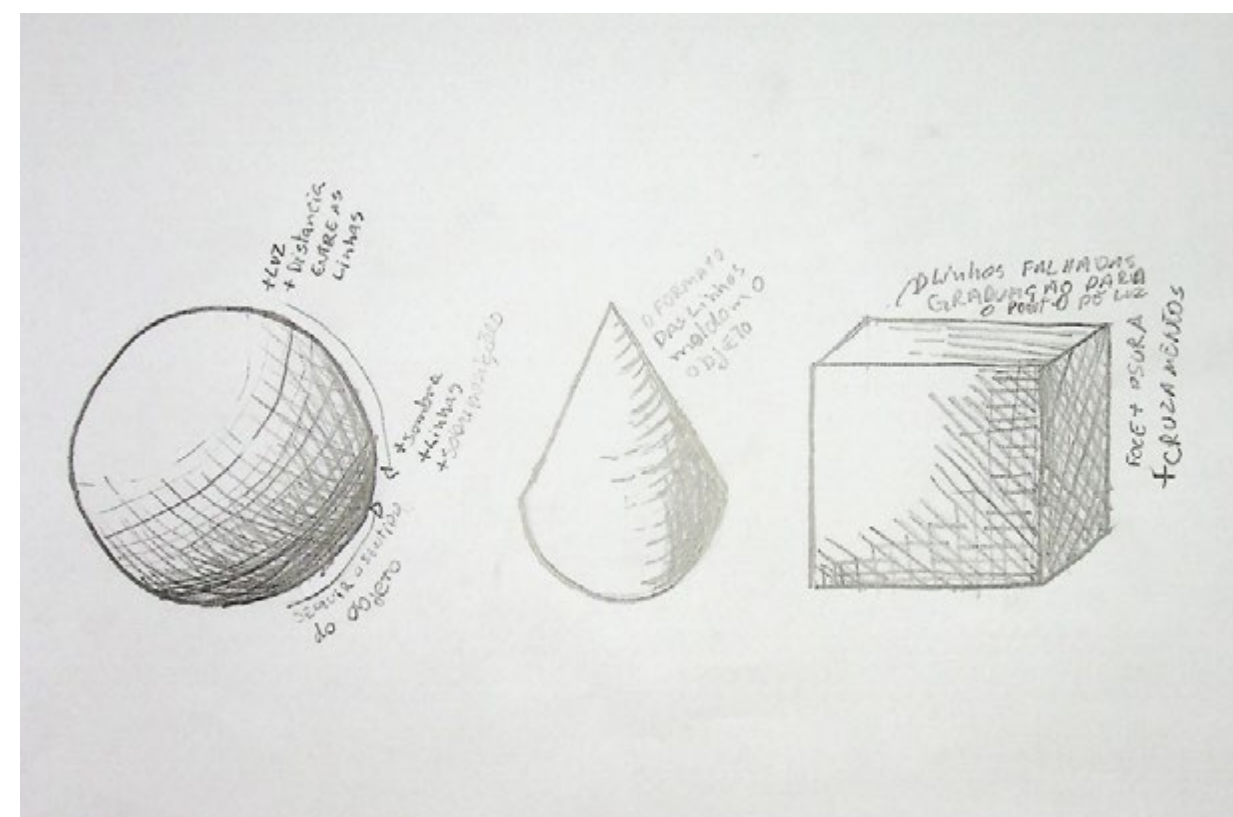 +LUZ
+Distancia
ENTRE AS
Linhas
+sombra
+Linhas
+sobreposição
SEGUIR O SENTIDO
do objeto
O FORMATO
DAS Linhas
moldam o
objeto
Linhas FALHADAS
GRADUAÇÃO PARA
O PONTO DE LUZ
+CRUZAMENTOS